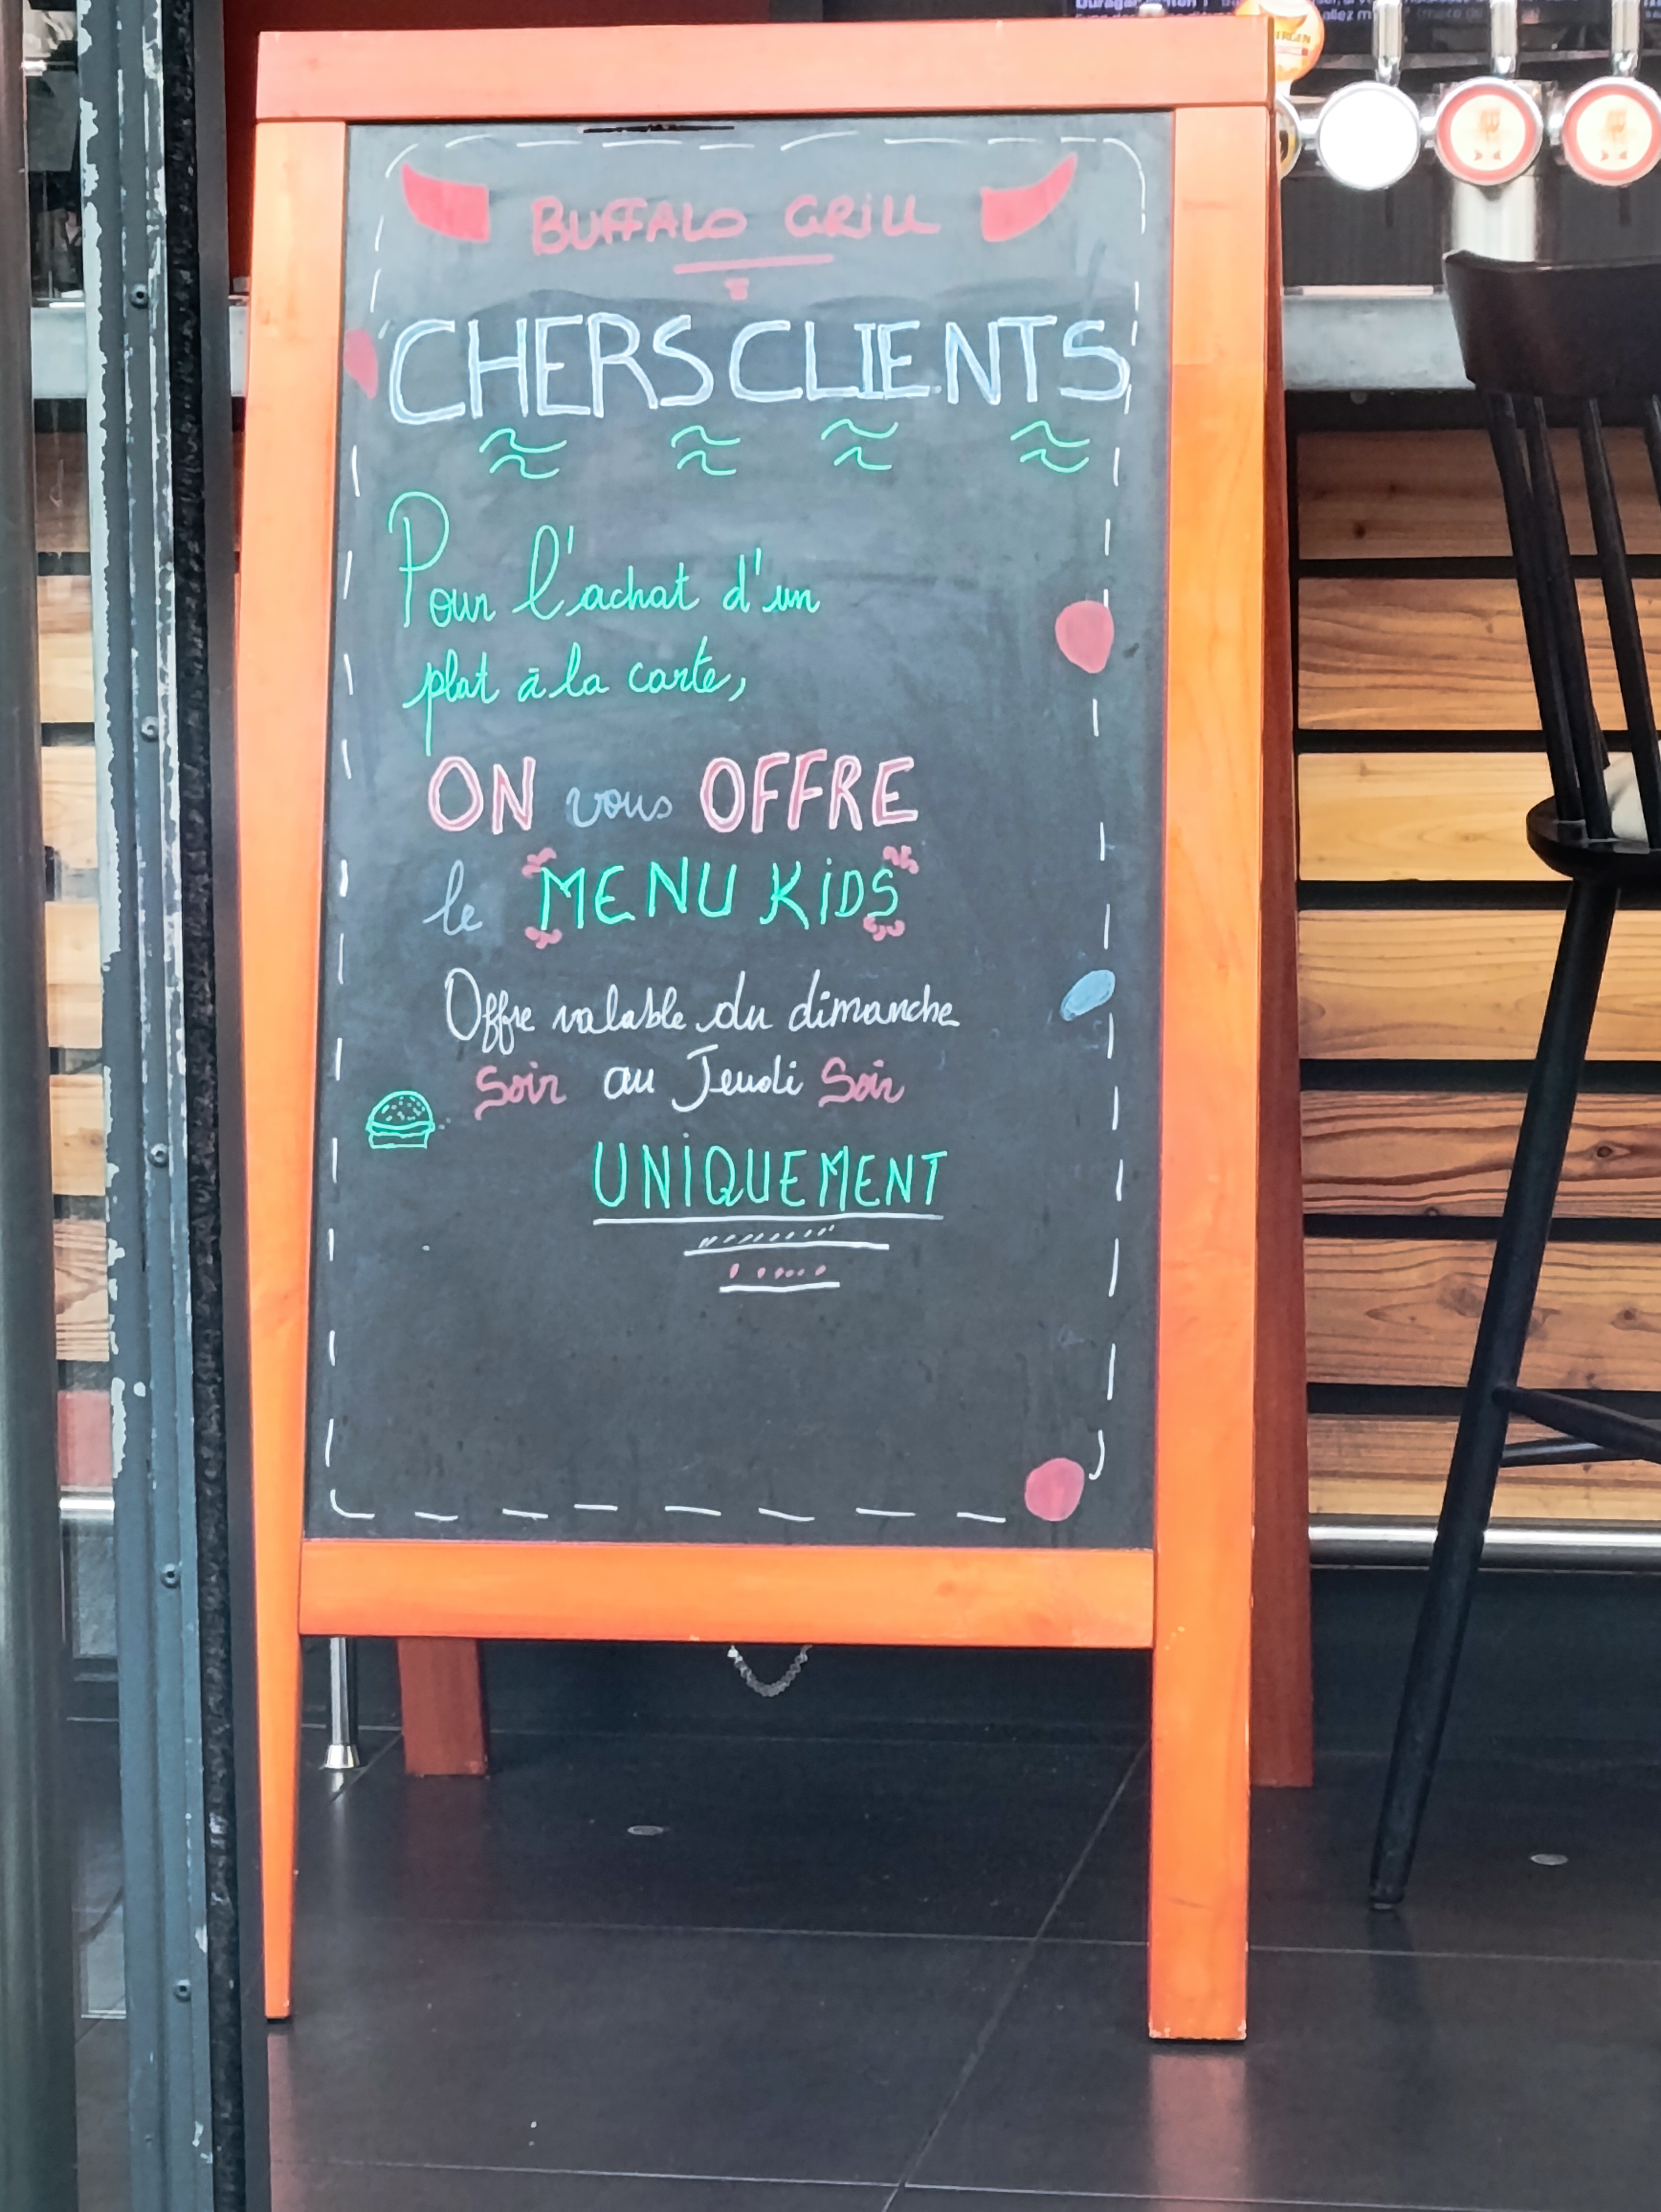 BUFFALO GRILL
CHERS CLIENTS
Pour l'achat d'un
plat à la carte,
ON vous OFFRE
le MENU KiDS
Offre valable du dimanche
Soir au Jeudi Soir
UNiQUEMENT